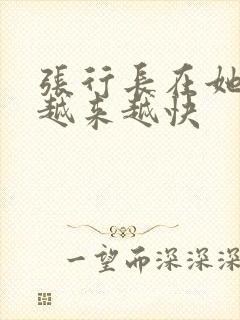 張行長在她
越来越快
一望而深深深